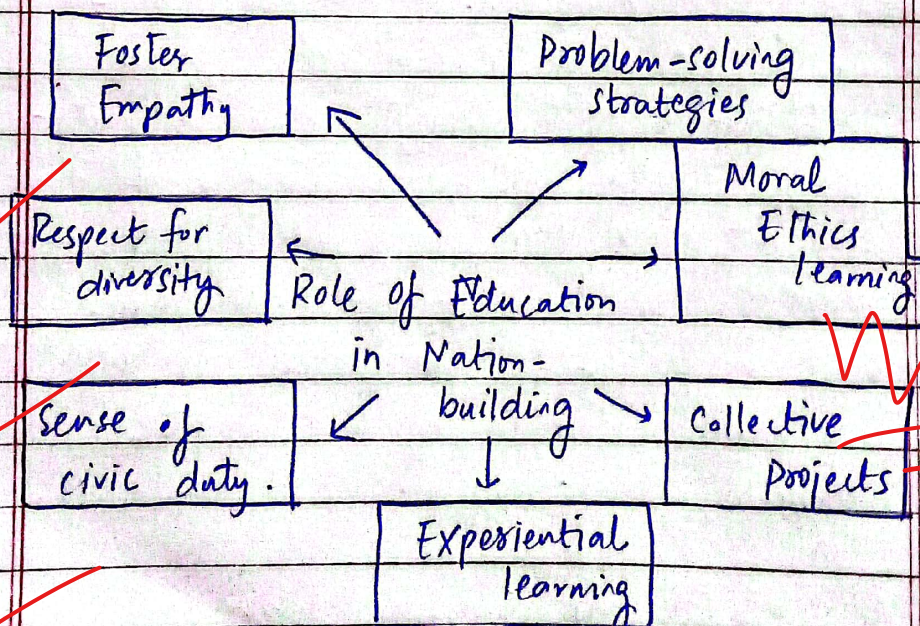 Foster
Empathy
Problem-solving
strategies
Moral
Ethics
learning
Respect for
diversity
Role of Education
in Nation-
building
Sense of
civic duty.
Collective
Projects
Experiential
learning